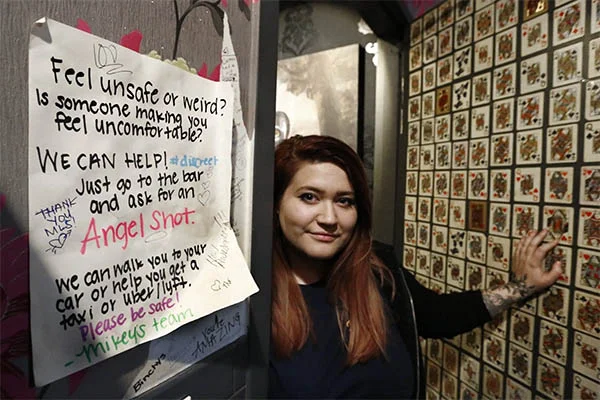 Feel unsafe or weird?
Is someone making you
feel uncomfortable?
WE CAN HELP! #discreet
Just go to the bar
and ask for an
Angel Shot.
we can walk you to your
car or help you get a
taxi or uber/lyft.
Please be safe!
-Mikeys team
THANK
YOU
You're
AMAZING